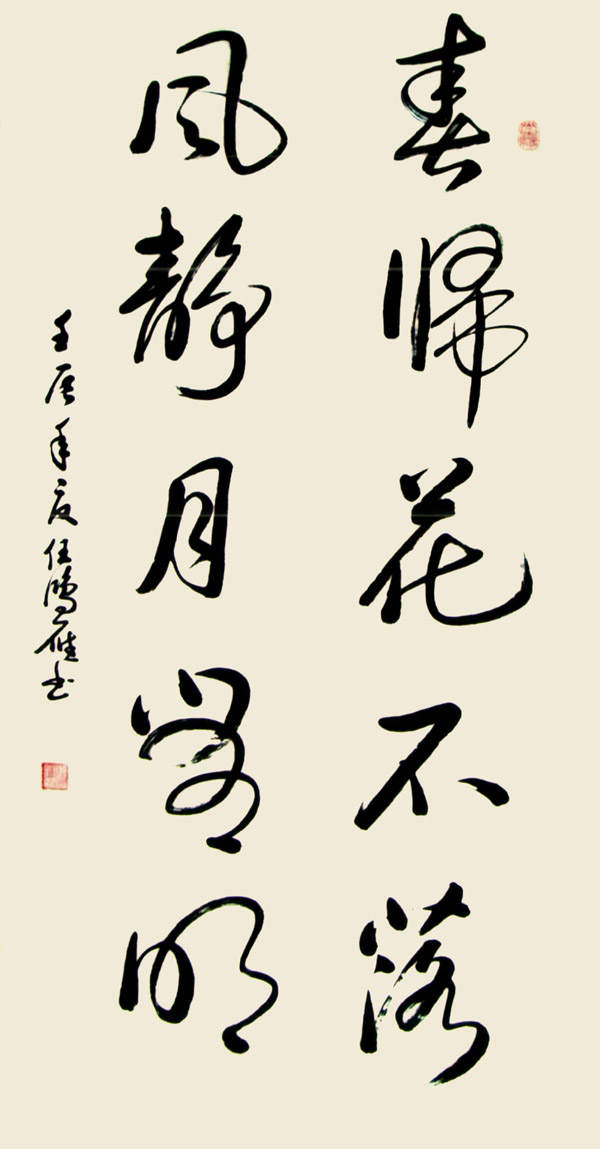 春归花不落
风静月常明
壬辰年夏任鸿雁书